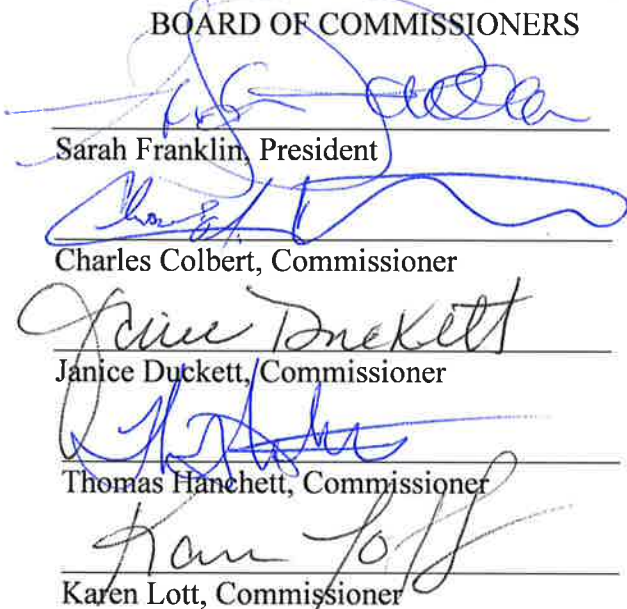 BOARD OF COMMISSIONERS
Sarah Franklin, President
Charles Colbert, Commissioner
Janice Duckett
Janice Duckett, Commissioner
Thomas Hanchett, Commissioner
Karen Lott
Karen Lott, Commissioner